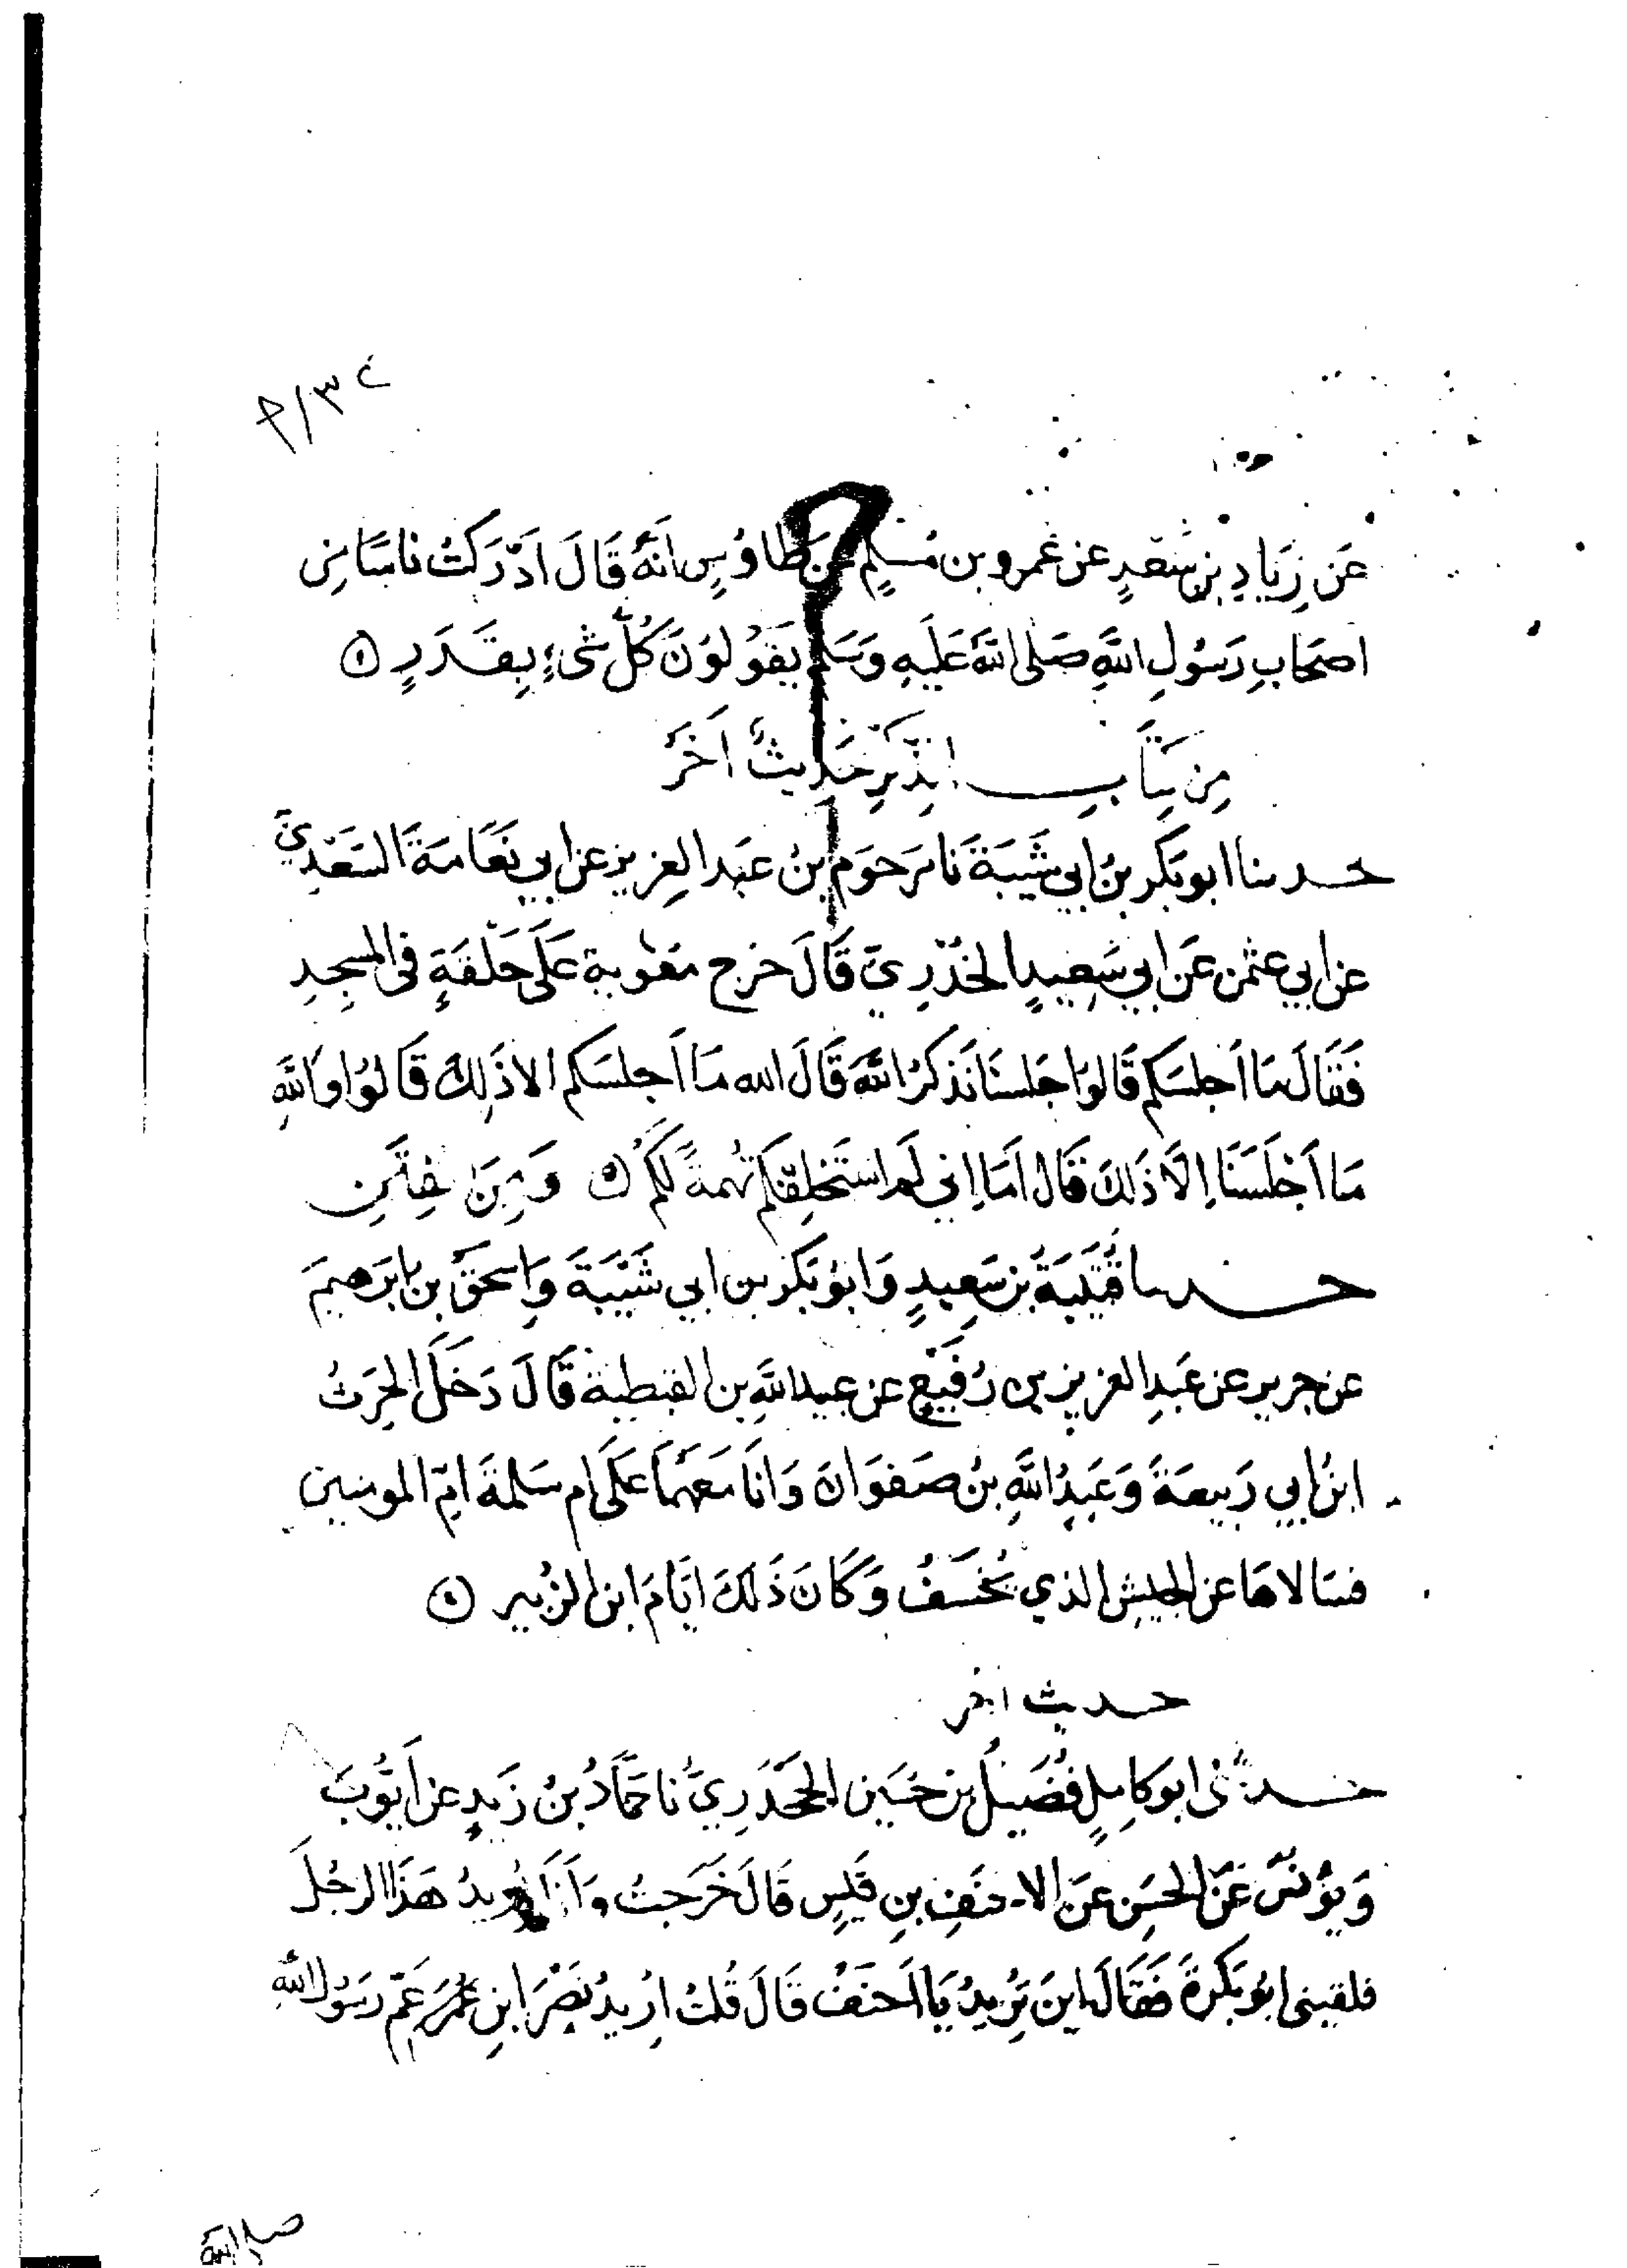 ٣٤/م
عَن زِيَادِ بنِ سَعدٍ عن عَمرو بن مُسلِمٍ عَن طَاوُسٍ انَّهُ قَالَ ادْرَكتُ ناسًا مِن
اصحَابِ رَسُولِ اللَّهِ صَلى اللَّهُ عَلَيهِ وَسَلم يَقُولُونَ كُلّ شىءٍ بِقَدَرٍ
مِن كِتَابِ الذِكرِ حَدِيثٌ اخَرُ
حدثنا ابو بَكر بنُ ابي شَيبَةَ نَا مَرحَوم بنُ عَبد العزيز عن ابي نَعَامَةَ السَعْدِيّ
عن ابي عثمن عَن ابي سَعِيدٍ الخُدْرِيّ قَالَ خرج معٰوية عَلَى حَلْقَةٍ فى المسجِدِ
فَقَالَ مَا اَجلسَكم قَالوُا جَلسنَا نَذكرُ اللَّهَ قَالَ الله مَا اَجلسَكم الا ذَلِكَ قَالوُا وَاللَّهِ
مَا اَجْلَسَنَا اِلَّا ذَلكَ قَالَ اَمَا اِنى لَم استَحْلِفْكُم تُهمَةً لَكُم وَمِنَ الفِتَنِ
حدثنا قُتَيبَةُ بن سَعِيدٍ وَابوُ بَكر بن ابي شَيْبَةَ وَاِسحَقُ بن ابرَهيمَ
عن جرير عن عَبدِ العزيز بن رُفَيْعٍ عن عبيد اللَّهِ بن القبطية قَالَ دَخَلَ الحرثُ
ابنُ ابي رَبيعَةَ وَعَبدُ اللَّهِ بنُ صَفوَانَ وَانَا مَعَهُمَا عَلَى ام سَلمةَ امِّ المومنين
فسَالاهَا عن الجيشِ الذي يُخسَفُ وَكَانَ ذَلكَ ايَامَ ابن الزُبير
حديث اخر
حدثنى ابو كامِلٍ فُضَيلُ بن حُسَين الجَحْدَرِيُّ نا حَمَّادُ بنُ زَيدٍ عن اَيُّوبَ
وَيوُنسَ عَنَ الحسَنِ عَن الاحنَفِ بنِ قَيسٍ قَالَ خَرَجتُ وَاَنَا اُرِيدُ هَذَا الرجُلَ
فلقيَنى ابوُ بَكرَةَ فَقَالَ اينَ تُرِيدُ يَا اَحنَفُ قَالَ قُلتُ اُرِيدُ نَصْرَ ابنِ عَمّ رَسُول اللَّهِ
صلى الله